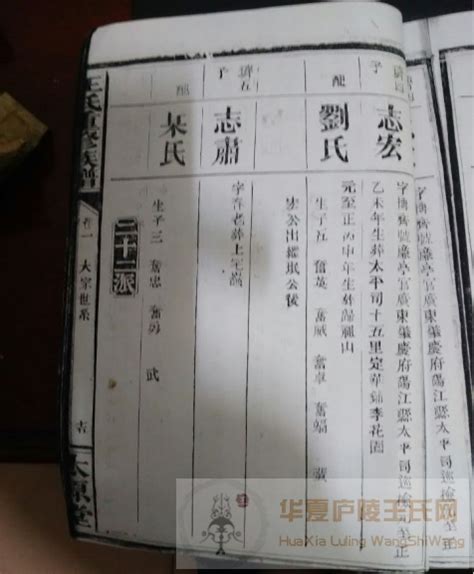 子
志宏
字 號廉亭官廣東肇慶府陽江縣太平司巡檢 至正
乙未年生葬太平司十五里定華鋪李花園
配
劉氏
元至正丙申年生葬歸龍山
生子五 奮英 奮威 奮卓 奮
宏公出繼 公後
五
子
志肅
字 老葬上
配
某氏
生子三 奮忠 奮 武
二十二派
王氏重修族譜
卷一 大宗世系
吉
太原堂
华夏庐陵王氏网
HuaXia Luling WangShiWang